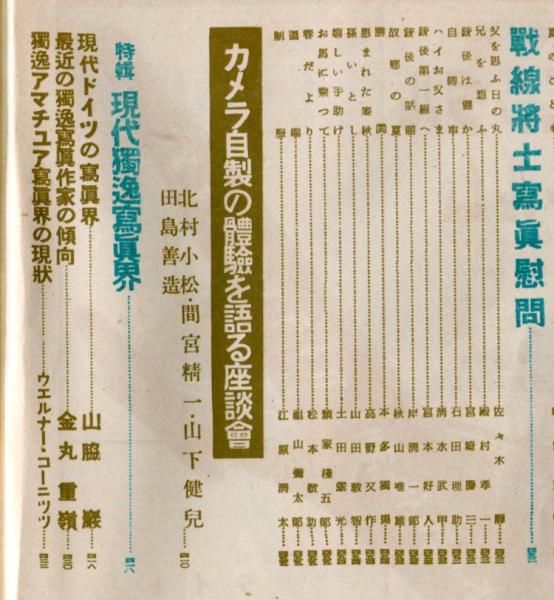 戰線將士寫眞慰問
父を思ふ日の丸……佐々木 靜
兄を想ふ……殿村孝一
銃後は健か……宮崎勝三
自轉車……石田理助
ハイお父さま……淸水武甲
銃後第一線へ……宮本好人
銃後の話題……岸潤一郎
故鄕の夏……秋山唯雄
勝鬨……本多獨場
惠まれた麥秋……高野又作
孫いとし……山田敬智
嬉しい手助け……土田露光
お馬に乘つて……類家淺五郎
春だより……松本敏功
江原潤太
カメラ自製の體驗を語る座談會
北村小松・間宮精一・山下健兒
田島善造
特輯 現代獨逸寫眞界
現代ドイツの寫眞界……山脇巖
最近の獨逸寫眞作家の傾向……金丸重嶺
獨逸アマチユア寫眞界の現狀……ウエルナー・コーニツツ